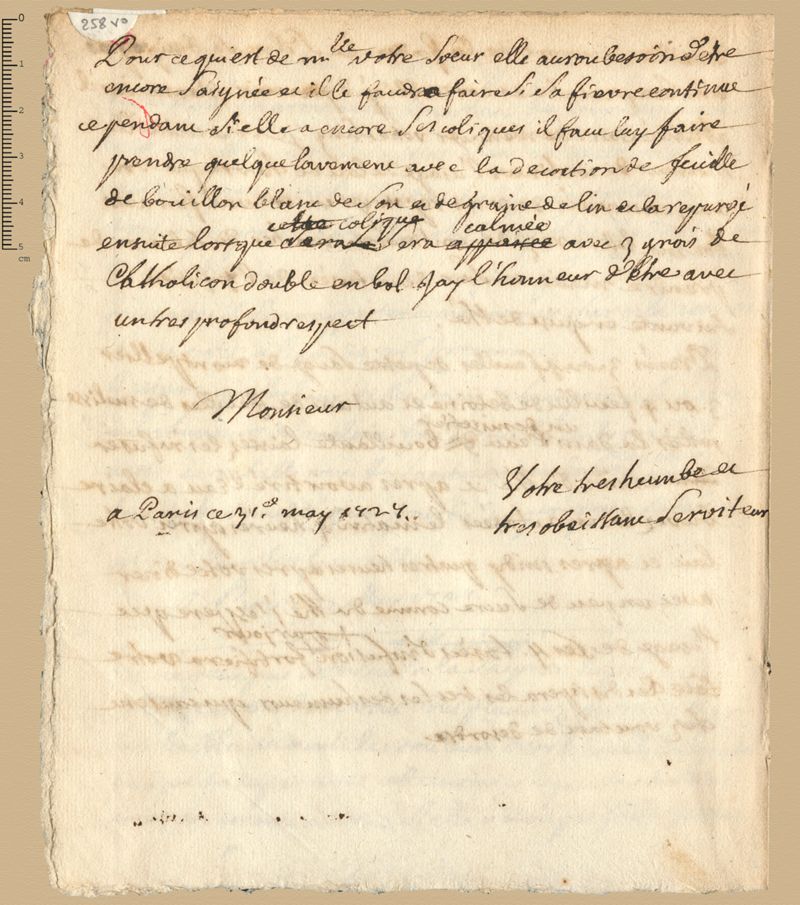 258 vo
Pour ce qui est de mlle votre soeur elle auroit besoin d'etre
encore saignée et il le faudra faire si sa fievre continue
cependant si elle a encore ses coliques il faut luy faire
prendre quelque lavement avec la decoction de feuille
de bouillon blanc de son et de graine de lin et la repurgé
cette colique calmée
ensuite lorsque sera appaisée avec 3 grois de
Catholicon double en bol. Jay l'honneur d'être avec
un tres profond respect
Monsieur
Votre tres humble et
a Paris ce 31e may 1727.
tres obeissant serviteur
0
1
2
3
4
5
cm